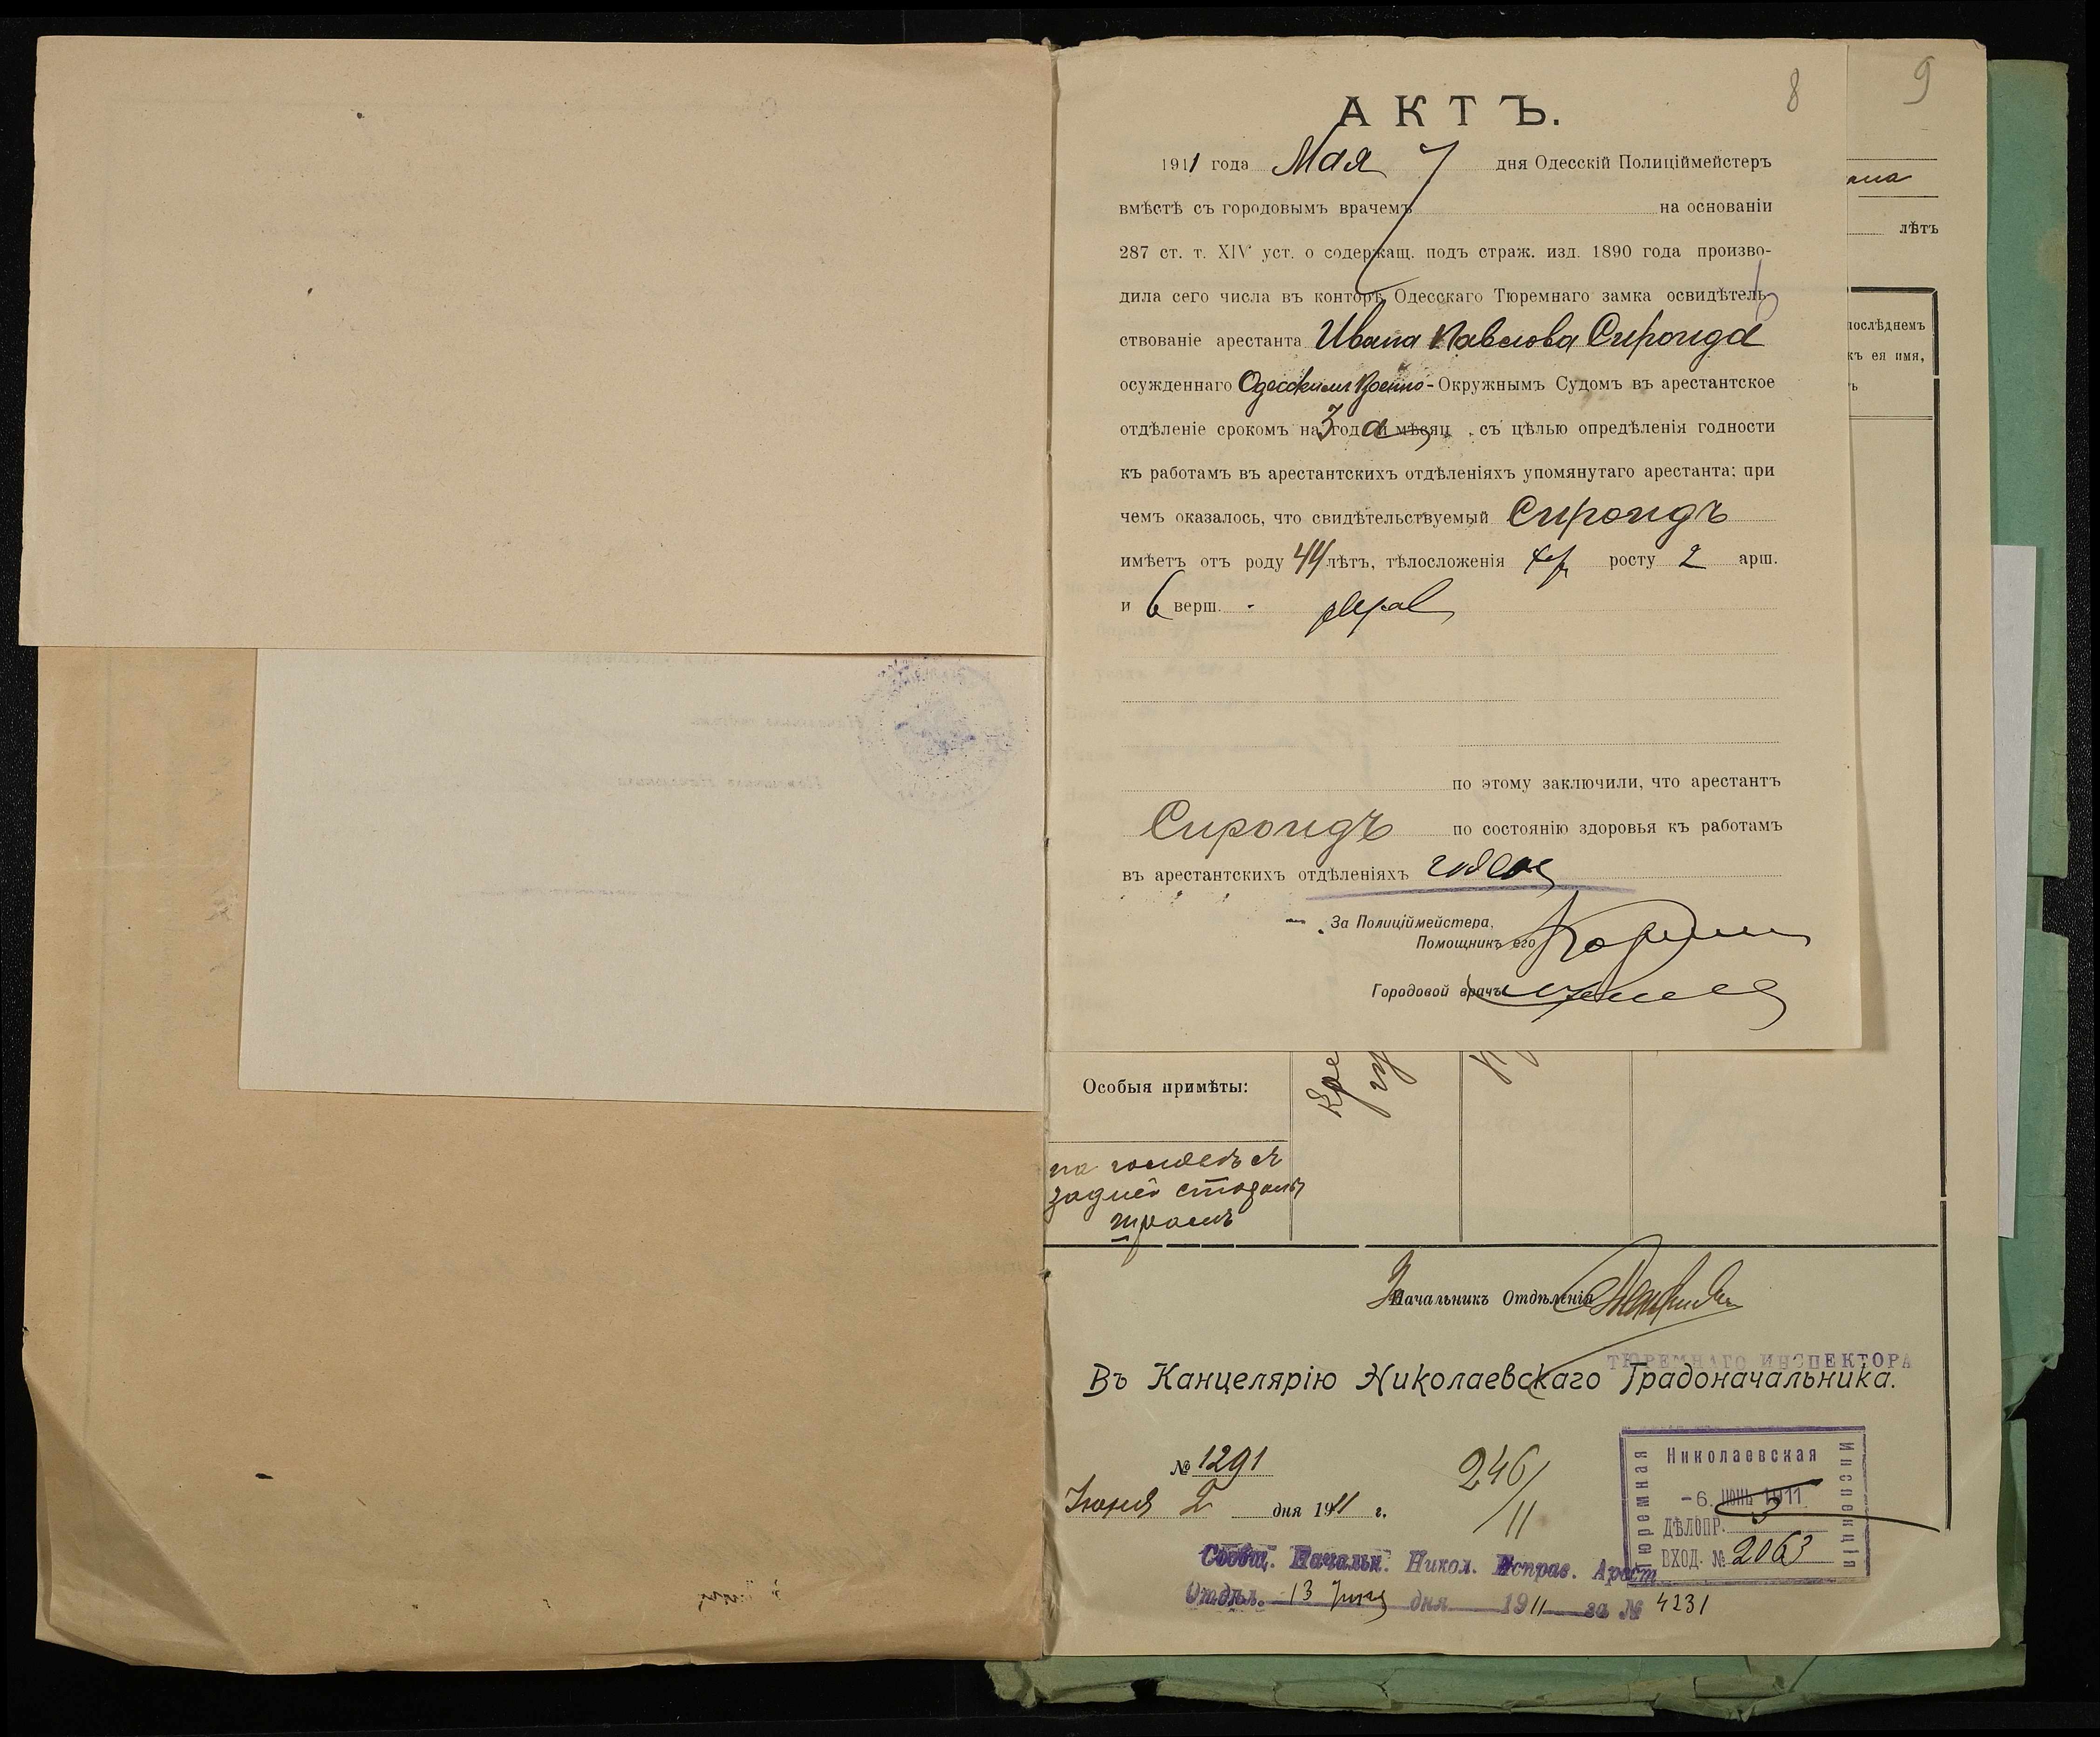 8
9
АКТЪ.
1911 года Мая 7 дня Одесскій Полиціймейстеръ
вмѣстѣ съ городовымъ врачемъ на основаніи
287 ст. т. XIV уст. о содержащ. подъ страж. изд. 1890 года произво-
дила сего числа въ конторѣ Одесскаго Тюремнаго замка освидѣтель-
ствованіе арестанта Ивана Павлова Сиронда
осужденнаго Одесскимъ Военно-Окружнымъ Судомъ въ арестантское
отдѣленіе срокомъ на 3 года и мѣсяц , съ цѣлью опредѣленія годности
къ работамъ въ арестантскихъ отдѣленіяхъ упомянутаго арестанта; при
чемъ оказалось, что свидѣтельствуемый Сирондъ
имѣетъ отъ роду 44 лѣтъ, тѣлосложенія росту 2 арш.
и 6 верш.
по этому заключили, что арестантъ
Сирондъ по состоянію здоровья къ работамъ
въ арестантскихъ отдѣленіяхъ годенъ
За Полиціймейстера,
Помощникъ его
Городовой врачъ
лѣтъ
послѣднемъ
къ ея имя,
Особыя примѣты:
на головѣ съ
задней стороны
шрамъ
Начальникъ Отдѣленія
ТЮРЕМНАГО ИНСПЕКТОРА
Въ Канцелярію Николаевскаго Градоначальника.
№ 1291
Іюня 2 дня 1911 г.
246/11
Николаевская
Тюремная
Инспекція
-6. ИЮНЬ 1911
ДѢЛОПР. 3
ВХОД. № 2063
Сообщ. Начальн. Никол. Исправ. Арест.
Отдѣл. 13 Іюня дня 1911 за № 4231